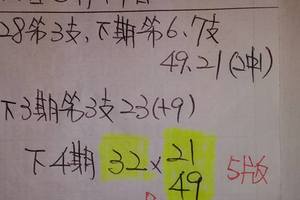 28第3支,下期第6、7支
49、21(2中1)
下3期第3支23(+9)
下4期 32×21
49
5版